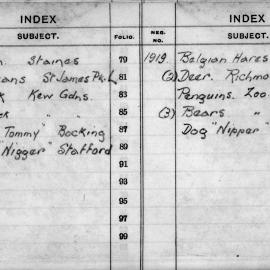 INDEX INDEX
SUBJECT. FOLIO. NEG. NO. SUBJECT.
Staines 79 1919. Belgian Hares
St James Pk. L 81 (2) Deer. Richmo
Kew Gdns. 83 Penguins. Zoo.
" 85 (3) Bears "
Tommy" Bocking 87 Dog "Nipper"
"Nigger" Stafford 89
91
93
95
97
99